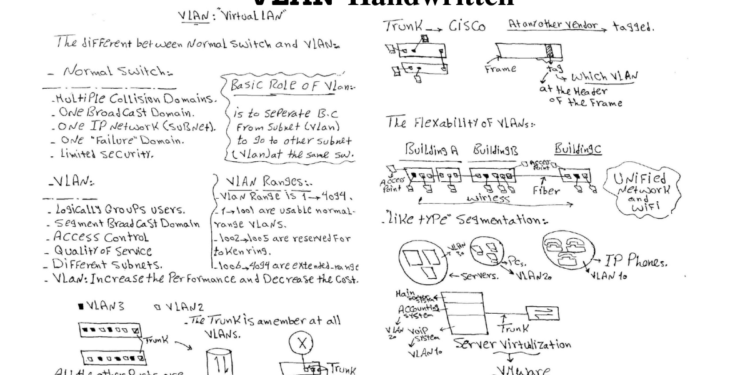 VLAN Handwritten
VLAN: "Virtual LAN"
The different between Normal Switch and VLANs:
- Normal Switch:-
- Multiple Collision Domains.
- One BroadCast Domain.
- One IP Network (SuBNet).
- One "Failure" Domain.
- Limited Security.
Basic Role of Vlan:
is to seperate B.C
From Subnet (Vlan)
to go to other subnet
(Vlan) at the same Sw.
- VLAN:-
- Logically Groups users.
- Segment BroadCast Domain
- Access Control
- Quality of Service
- Different Subnets.
- VLAN: Increase the Performance and Decrease the Cost.
VLAN Ranges:-
- Vlan Range is 1→4094.
- 1→1001 are usable normal-
range VLANs.
- 1002→1005 are reserved for
token ring.
- 1006→4094 are extended-range
VLAN3
VLAN2
Trunk
- The Trunk is a member at all
VLANs.
X
Trunk
All the other Ports are
Trunk → Cisco
At another vendor → tagged.
Frame
tag
which VLAN
at the Header
of the Frame
The Flexability of VLANs:-
Building A
Building B
Building C
Access
Point
Access
Point
Fiber
wireless
Unified
Network
and
WiFi
"like type" Segmentation:-
VLAN
30
Servers.
PCs.
VLAN 20
IP Phones.
VLAN 10
Main
system
Accounting
System
VLAN
20
VoIP
System
VLAN 10
Trunk
Server Virtulization
VMware